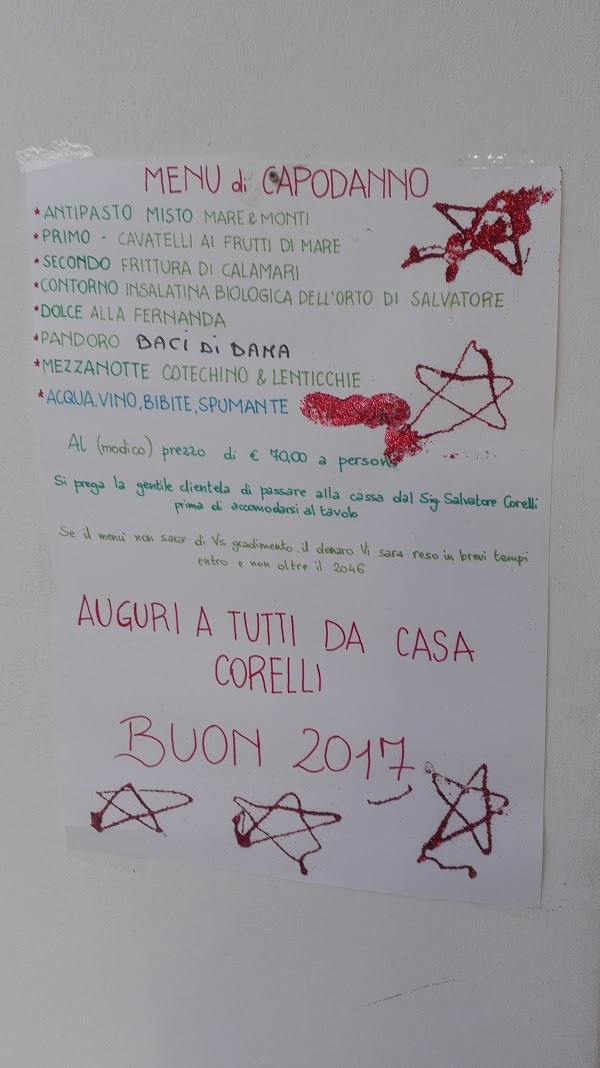 MENU di CAPODANNO
* ANTIPASTO MISTO MARE & MONTI
* PRIMO - CAVATELLI AI FRUTTI DI MARE
* SECONDO FRITTURA DI CALAMARI
* CONTORNO INSALATINA BIOLOGICA DELL'ORTO DI SALVATORE
* DOLCE ALLA FERNANDA
* PANDORO BACI DI DAMA
* MEZZANOTTE COTECHINO & LENTICCHIE
* ACQUA, VINO, BIBITE, SPUMANTE
AL (modico) prezzo di € 70,00 a persona
Si prega la gentile clientela di passare alla cassa dal Sig. Salvatore Corelli
prima di accomodarsi al tavolo
Se il menù non sara' di Vs gradimento, il denaro Vi sara reso in brevi tempi
entro e non oltre il 2046
AUGURI A TUTTI DA CASA
CORELLI
BUON 2017